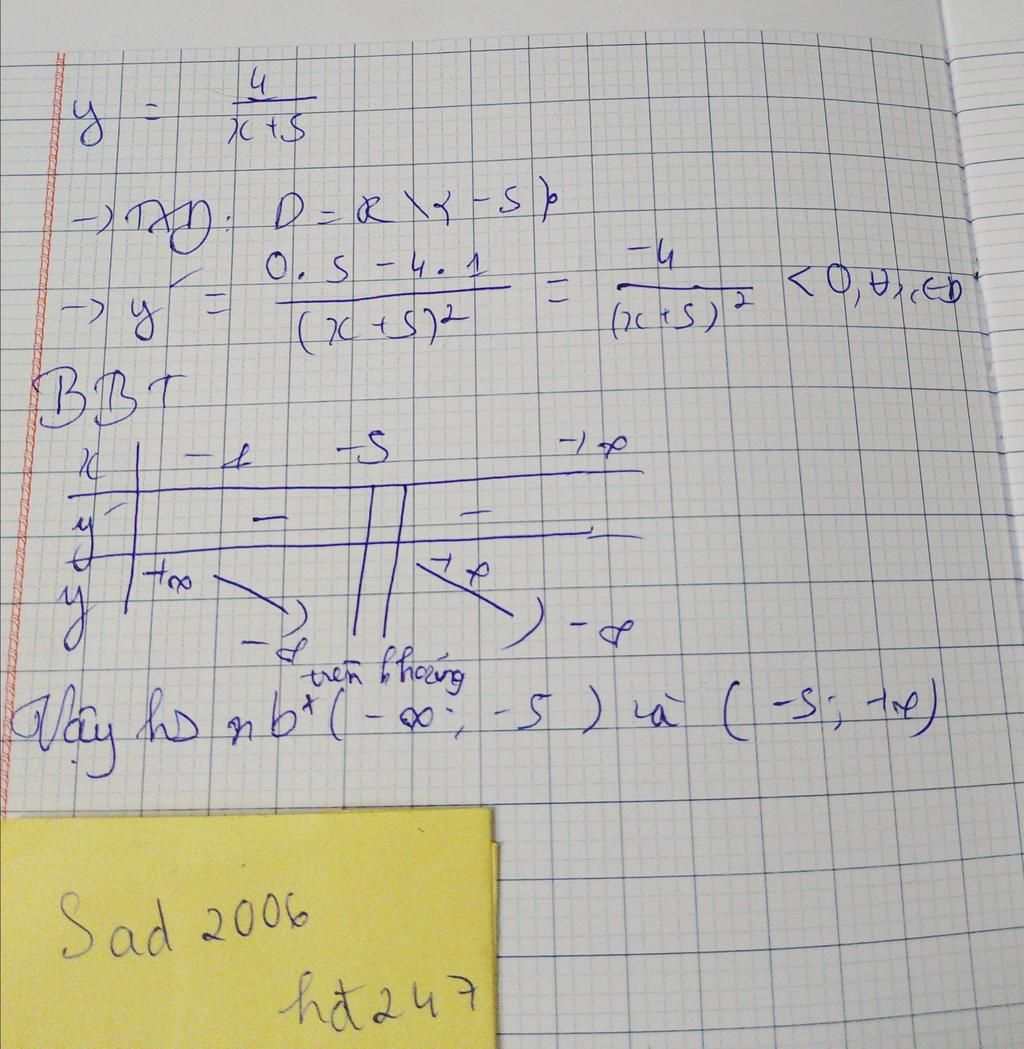 y = 4/(x+5)
→ TXĐ: D = R \ {-5}
→ y' = (0.5 - 4.1)/(x+5)² = -4/(x+5)² < 0, ∀x ∈ D
BBT
x -∞ -5 +∞
y' - -
y +∞ -∞ +∞ -∞
trên khoảng
Vậy hs nb (-∞; -5) và (-5; +∞)
Sad 2006
hđ247